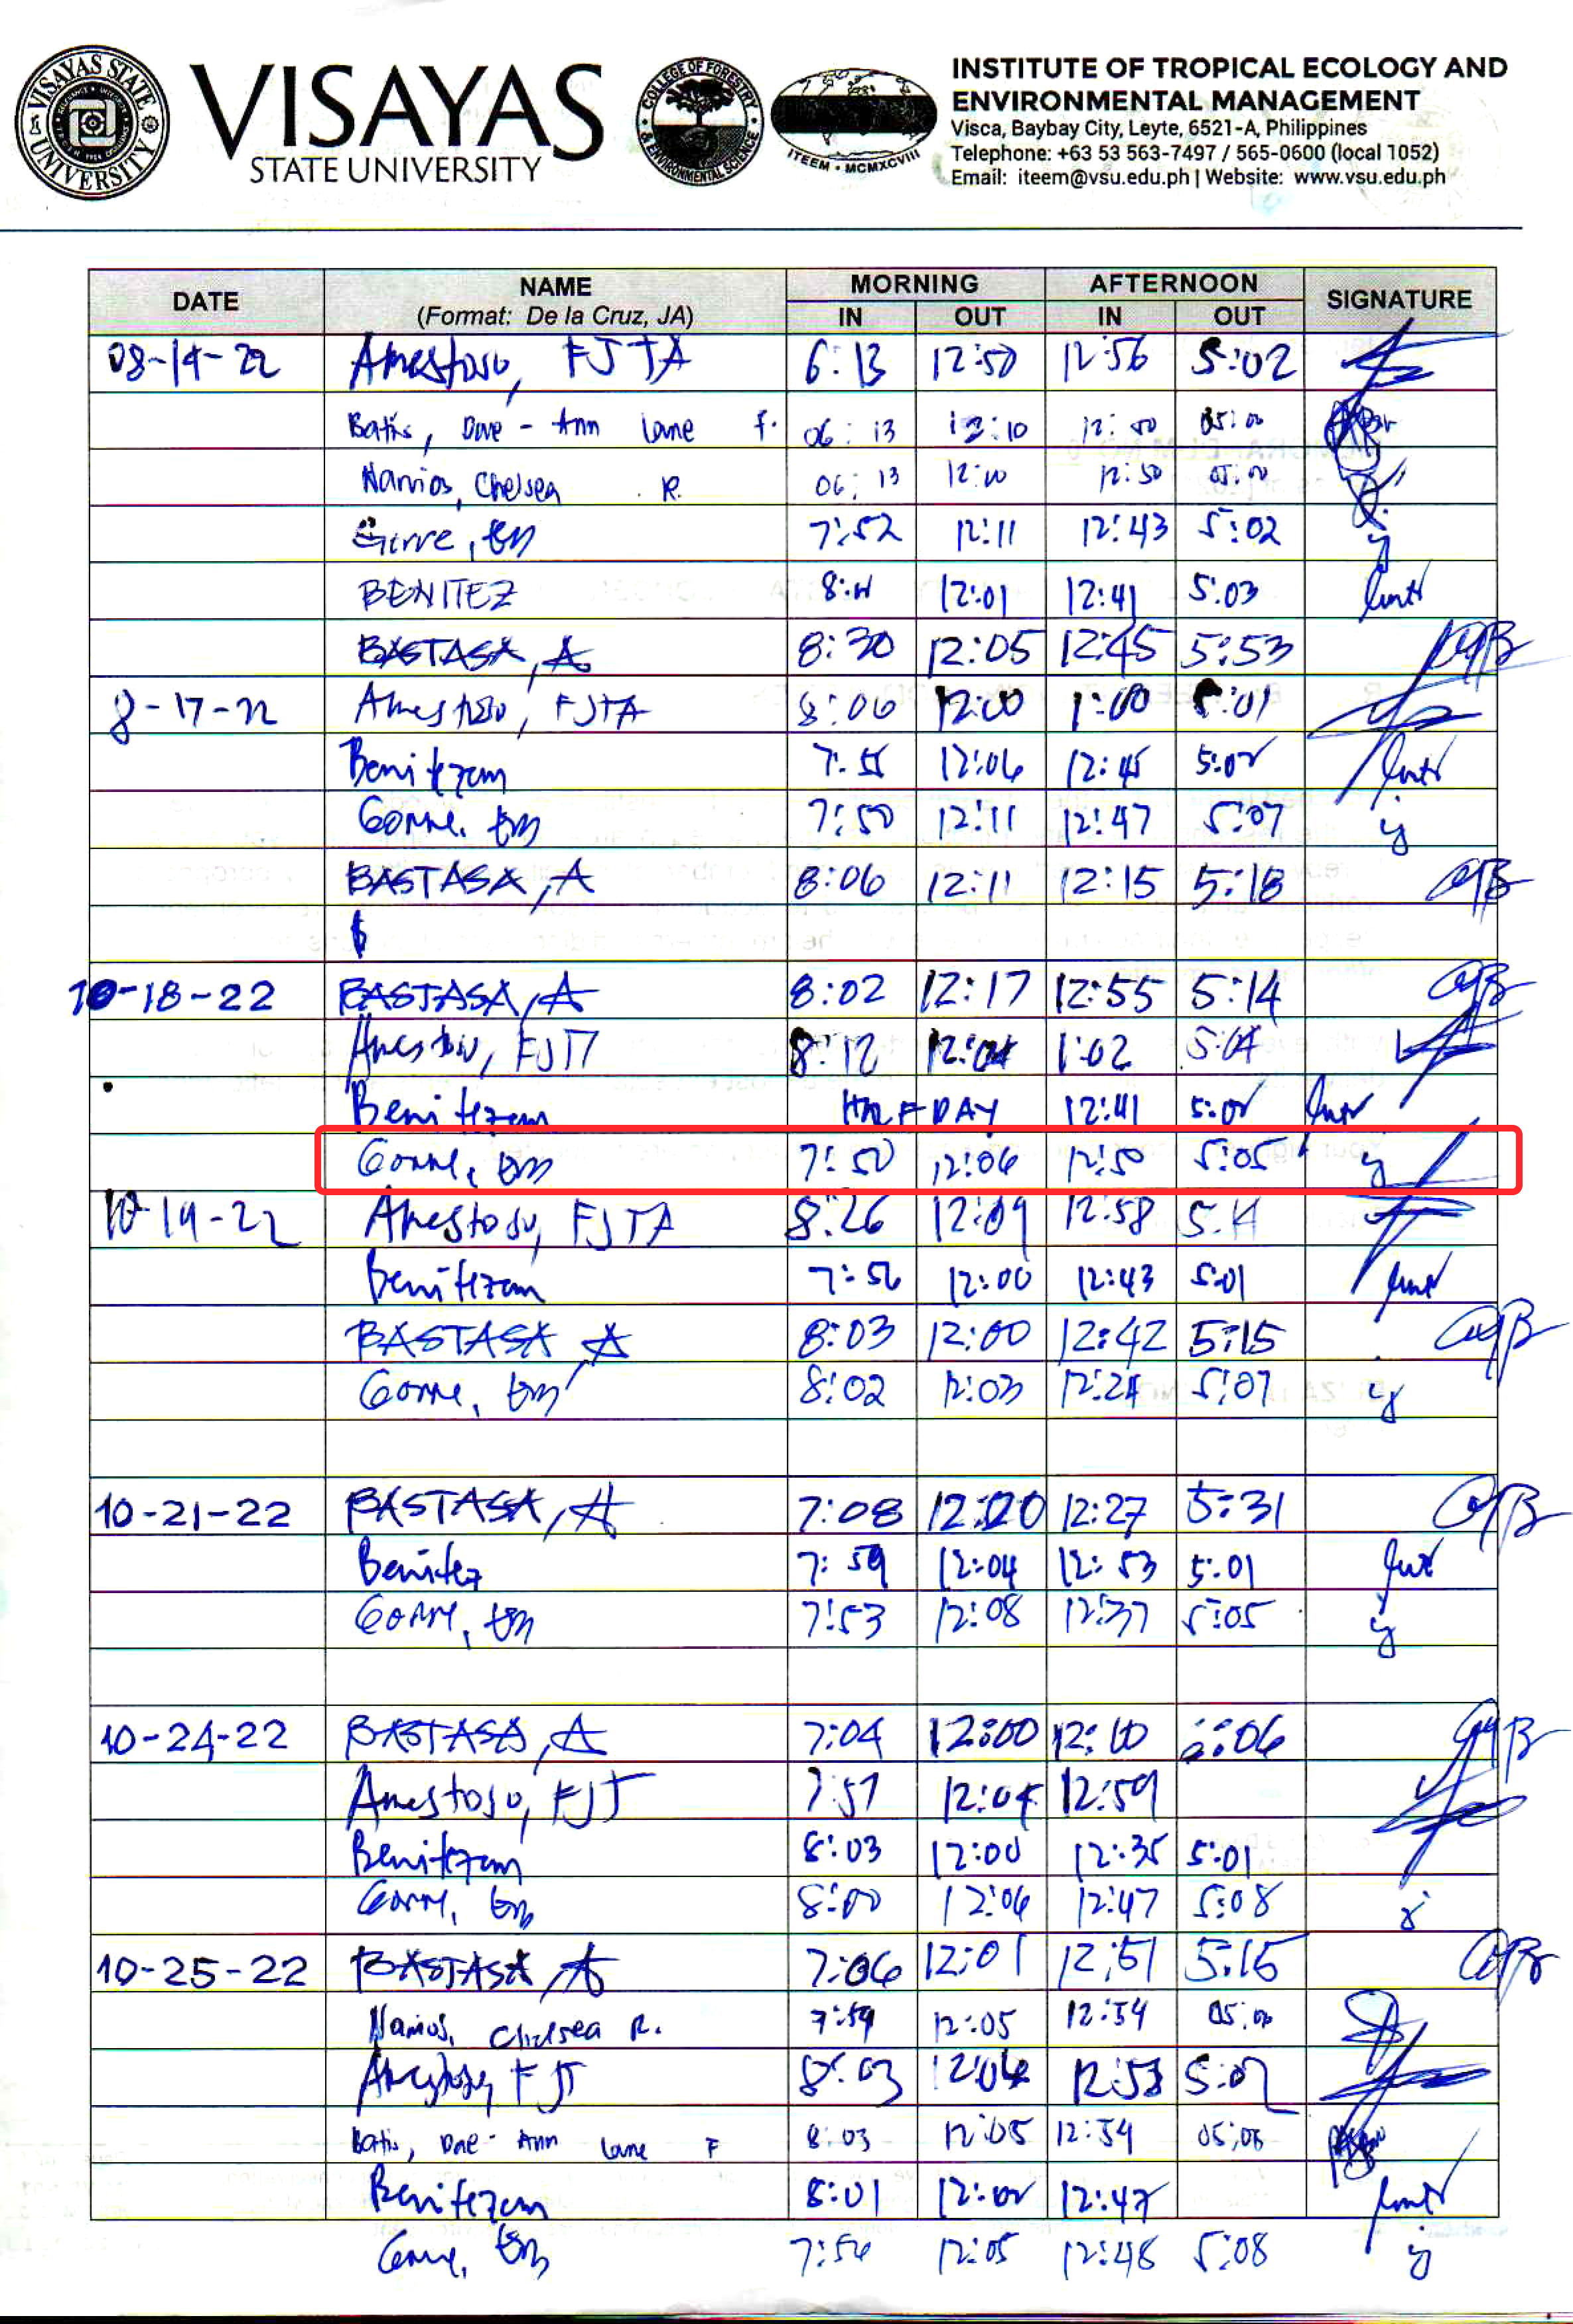 VISAYAS STATE UNIVERSITY
VISAYAS
STATE UNIVERSITY
COLLEGE OF FORESTRY & ENVIRONMENTAL SCIENCE
ITEEM • MCMXCVIII
INSTITUTE OF TROPICAL ECOLOGY AND
ENVIRONMENTAL MANAGEMENT
Visca, Baybay City, Leyte, 6521-A, Philippines
Telephone: +63 53 563-7497 / 565-0600 (local 1052)
Email: iteem@vsu.edu.ph | Website: www.vsu.edu.ph
DATE NAME MORNING AFTERNOON SIGNATURE
(Format: De la Cruz, JA) IN OUT IN OUT
08-14-22 Amestoso, FJTA 6:13 12:50 12:56 5:02
Batis, Dave-Ann Lane F. 06:13 12:10 12:50 05:00
Namios, Chelsea R. 06:13 12:10 12:50 05:00
Gorre, EM 7:52 12:11 12:43 5:02
BENITEZ 8:11 12:01 12:41 5:03
BASTASA, A 8:30 12:05 12:45 5:53
8-17-22 Amestoso, FJTA 8:06 12:00 1:00 5:01
Benitezam 7:55 12:06 12:45 5:02
Gorre, EM 7:50 12:11 12:47 5:07
BASTASA, A 8:06 12:11 12:15 5:18
10-18-22 BASTASA, A 8:02 12:17 12:55 5:14
Amestoso, FJT 8:12 12:04 1:02 5:04
Benitezam HALF DAY 12:41 5:02
Gorre, EM 7:50 12:06 12:50 5:05
10-19-22 Amestoso, FJTA 8:26 12:09 12:58 5:11
Benitezam 7:56 12:00 12:43 5:01
BASTASA, A 8:03 12:00 12:42 5:15
Gorre, EM 8:02 12:03 12:24 5:07
10-21-22 BASTASA, A 7:08 12:20 12:27 5:31
Benitez 7:59 12:04 12:53 5:01
Gorre, EM 7:53 12:08 12:37 5:05
10-24-22 BASTASA, A 7:04 12:00 12:10 :06
Amestoso, FJT 7:57 12:04 12:59
Benitezam 8:03 12:00 12:35 5:01
Gorre, EM 8:00 12:06 12:47 5:08
10-25-22 BASTASA, A 7:06 12:01 12:51 5:15
Namios, Chelsea R. 7:59 12:05 12:54 05:00
Amestoso, FJT 8:03 12:04 12:53 5:02
Batis, Dave-Ann Lane F 8:03 12:05 12:54 05:05
Benitezam 8:01 12:02 12:47
Gorre, EM 7:54 12:05 12:48 5:08